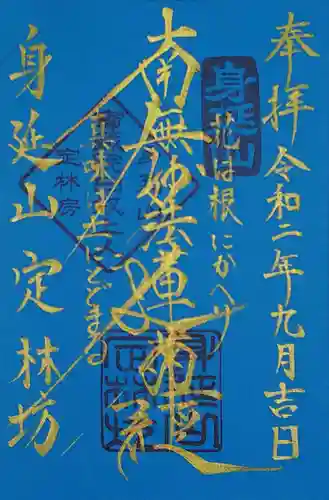 奉拝 令和二年九月吉日
身延山
花は根にかへり
南無妙法蓮華経
真味は土にとどまる
定林房
身延山 定林坊